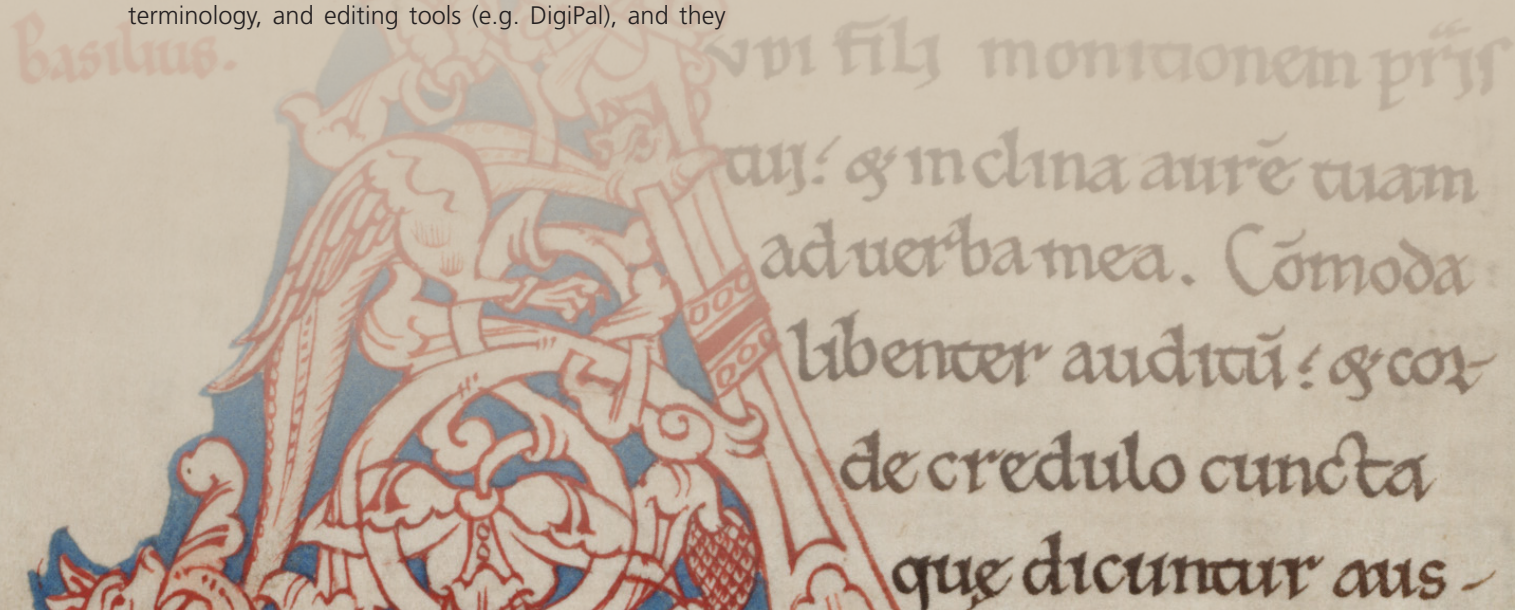 terminology, and editing tools (e.g. DigiPal), and they
basilius.
Avdi filij monitionem pr̄is
tuj: & inclina aurē tuam
ad uerba mea. Cōmoda
libenter auditū: & cor-
de credulo cuncta
quę dicuntur aus-